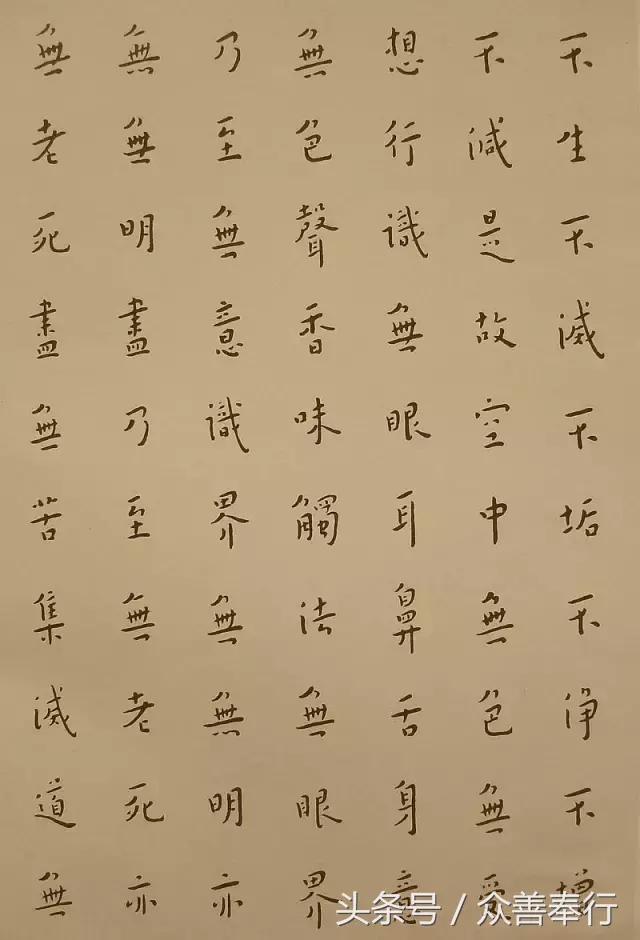 不生不滅不垢不淨不增
不減是故空中無色無受
想行識無眼耳鼻舌身意
無色聲香味觸法無眼界
乃至無意識界無無明亦
無無明盡乃至無老死亦
無老死盡無苦集滅道無
头条号 / 众善奉行